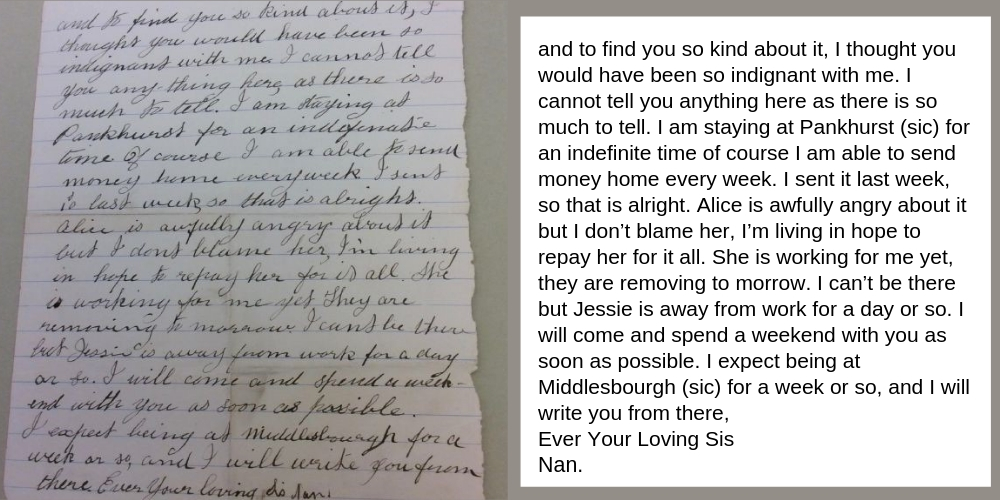 and to find you so kind about it, I
thought you would have been so
indignant with me. I cannot tell
you any-thing here as there is so
much to tell. I am staying at
Pankhurst for an indefinate
time Of course I am able to send
money home everyweek I sent
it last week, so that is alright.
Alice is awfully angry about it
but I dont blame her, I'm living
in hope to repay her for it all. She
is working for me yet They are
removing to morrow I cant be there
but Jessie is away from work for a day
or so. I will come and spend a week-
end with you as soon as possible.
I expect being at Middlesbourgh for a
week or so, and I will write you from
there. Ever Your loving Sis Nan.
and to find you so kind about it, I thought you
would have been so indignant with me. I
cannot tell you anything here as there is so
much to tell. I am staying at Pankhurst (sic) for
an indefinite time of course I am able to send
money home every week. I sent it last week,
so that is alright. Alice is awfully angry about it
but I don’t blame her, I’m living in hope to
repay her for it all. She is working for me yet,
they are removing to morrow. I can’t be there
but Jessie is away from work for a day or so. I
will come and spend a weekend with you as
soon as possible. I expect being at
Middlesbourgh (sic) for a week or so, and I will
write you from there,
Ever Your Loving Sis
Nan.